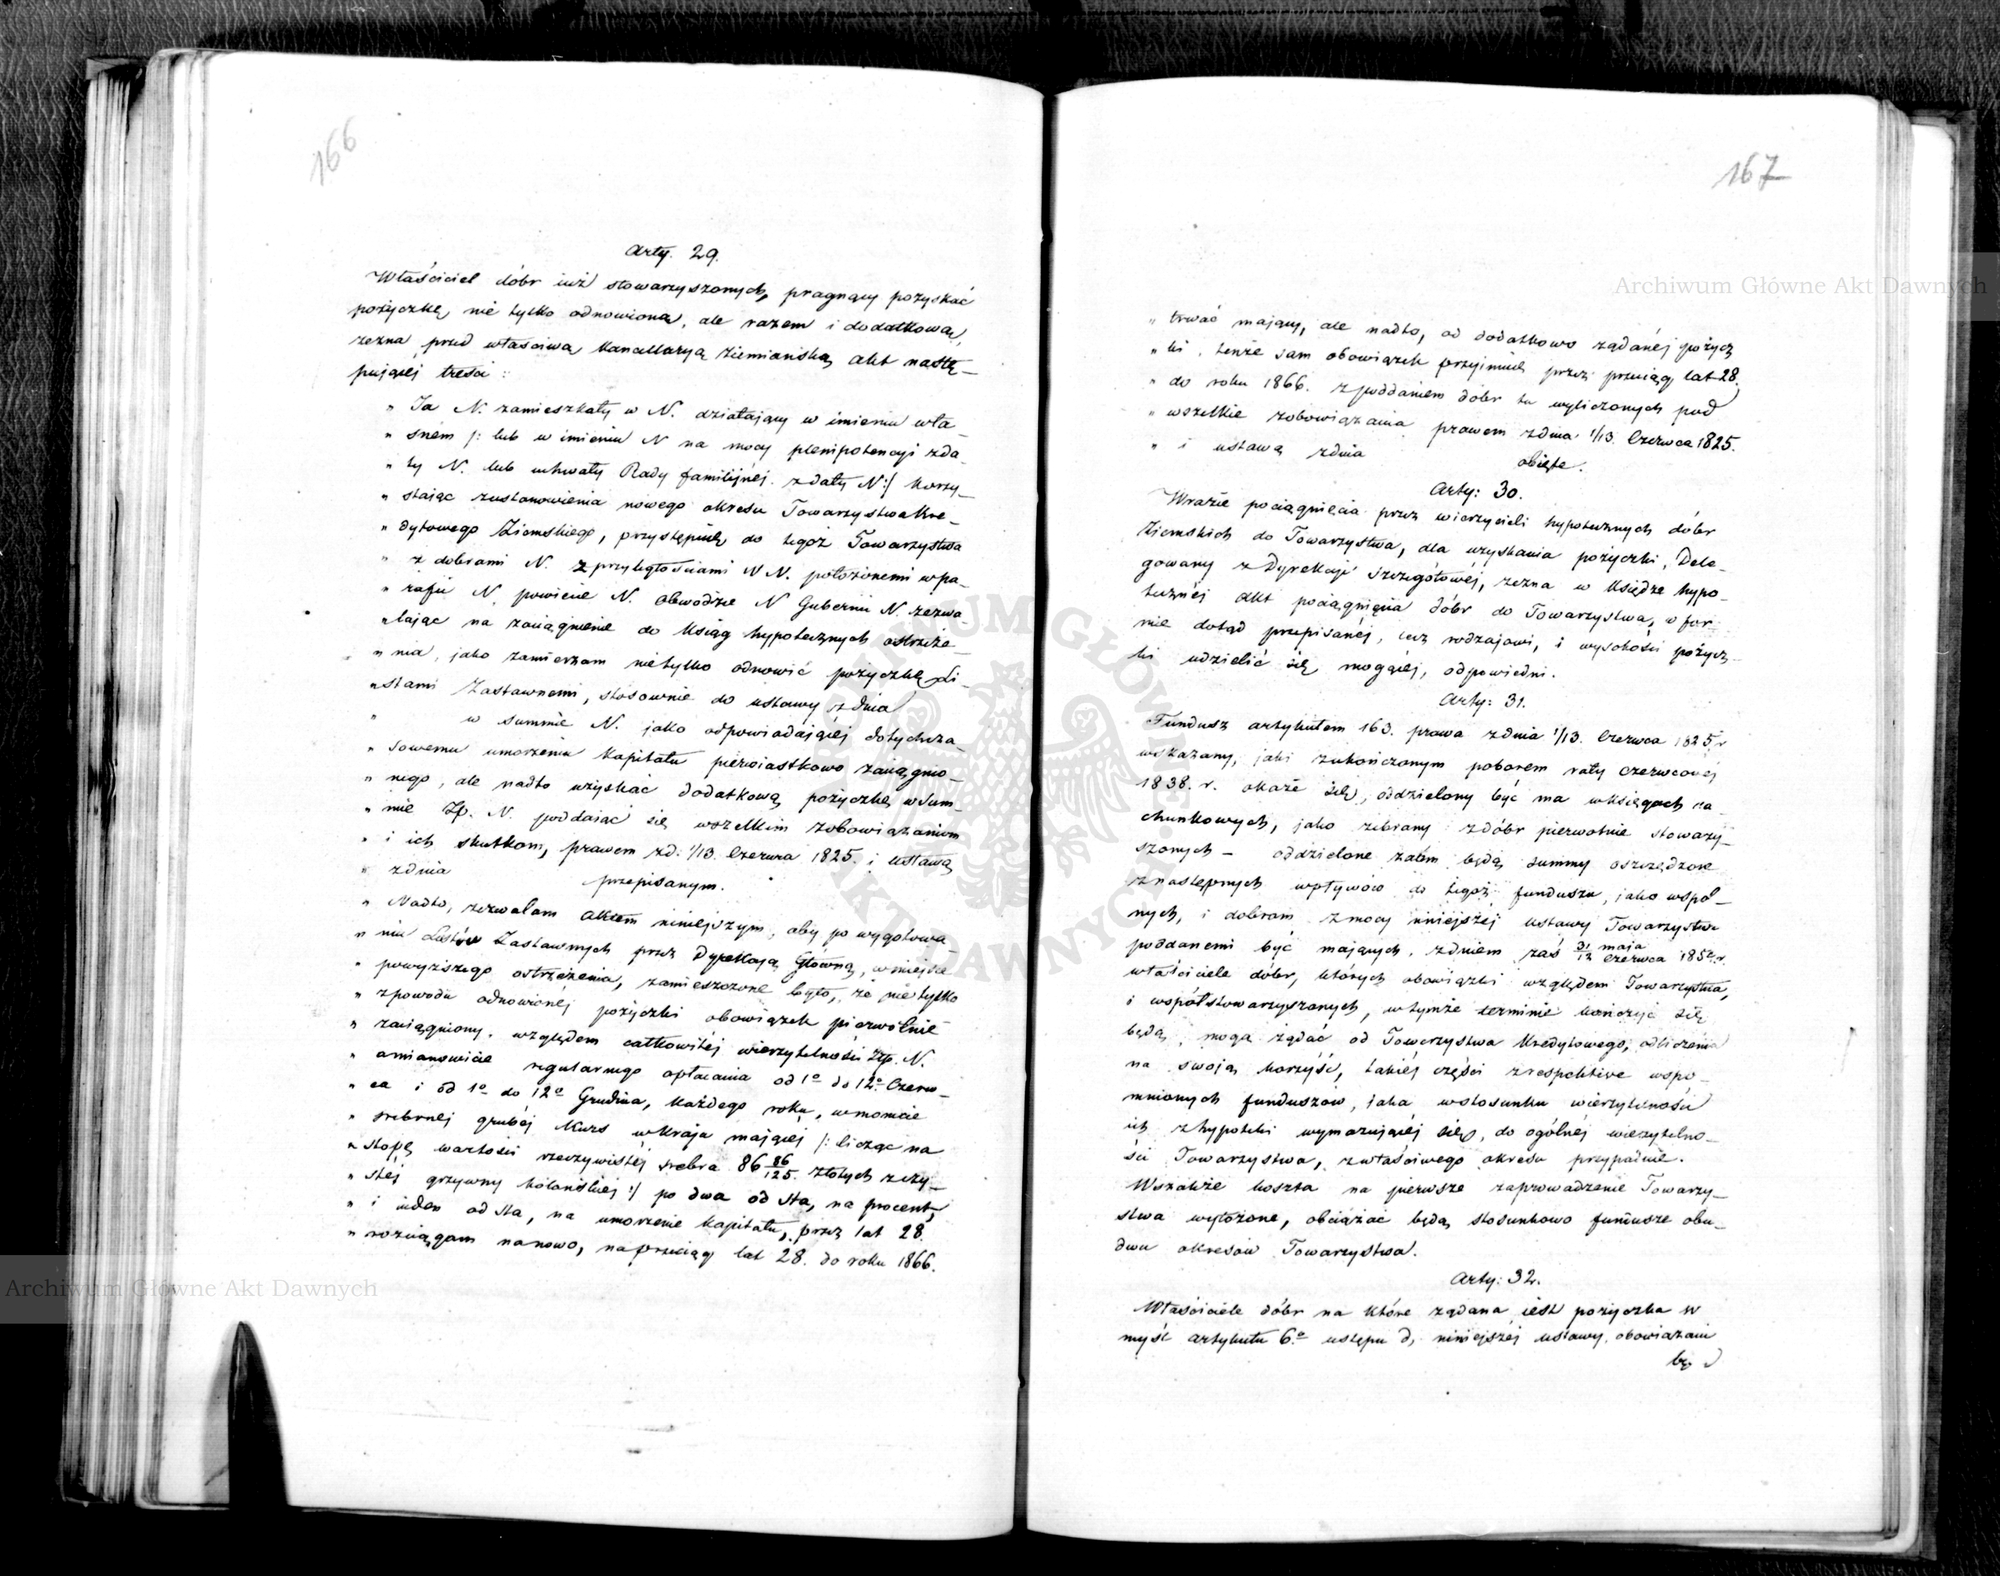 166
Arty. 29.
Właściciel dóbr już stowarzyszonych, pragnący pozyskać
pożyczkę nie tylko odnowioną, ale razem i dodatkową,
zezna przed właściwą Kancellaryą Ziemiańską akt nastę-
pującéj treści:
„ Ja N. zamieszkały w N. działający w imieniu wła-
„ sném /: lub w imieniu N na mocy plenipotencyi z da-
„ ty N. lub uchwały Rady familijnéj z daty N :/ korzy-
„ stając z ustanowienia nowego okresu Towarzystwa Kre-
„ dytowego Ziemskiego, przystępuię do tegoż Towarzystwa
„ z dobrami N. z przyległościami N N. położonemi w pa-
„ rafii N, powiecie N. Obwodzie N Gubernii N zezwa-
„ lając na zaciągnienie do Ksiąg hypotecznych ostrzeże-
„ nia, jako zamierzam nietylko odnowić pożyczkę Li-
„ stami Zastawnemi, stosownie do ustawy z dnia
„ w summie N. jako odpowiadającéj dotychcza-
„ sowemu umorzeniu Kapitału pierwiastkowo zaciągnio-
„ nego, ale nadto uzyskać dodatkową pożyczkę w Sum-
„ mie Zp. N. poddając się wszelkim zobowiązaniom
„ i ich skutkom, prawem z d: 1/13. Czerwca 1825. i ustawą
„ z dnia przepisanym.
„ Nadto, zezwalam aktem niniejszym, aby po wygotowa-
„ niu Listów Zastawnych przez Dyrekcją Główną, w miejsce
„ powyższego ostrzeżenia, zamieszczone było, że nie tylko
„ z powodu odnowionéj pożyczki obowiązek pierwotnie
„ zaciągniony, względem całkowitéj wierzytelności Zp. N.
„ a mianowicie regularnego opłacania od 1o do 12o Czerw-
„ ca i od 1o do 12o Grudnia, każdego roku, w monecie
„ srebrnéj grubéj Kurs w Kraju mającéj /: licząc na
„ stopę wartości rzeczywistéj srebra 86 86/125. złotych z czy-
„ stéj grzywny kolońskiéj :/ po dwa od Sta, na procent,
„ i ieden od Sta, na umorzenie Kapitału, przez lat 28.
„ rozciągam na nowo, na przeciąg lat 28. do roku 1866.
167
„ trwać mający, ale nadto, od dodatkowo żądanéj pożycz
„ ki, tenże sam obowiązek przyjmuię przez przeciąg lat 28.
„ do roku 1866. z poddaniem dóbr tu wyliczonych pod
„ wszelkie zobowiązania prawem z dnia 1/13. Czerwca 1825.
„ i ustawą z dnia obięte.
Arty: 30.
W razie pociągnięcia przez wierzycieli hypotecznych dóbr
Ziemskich do Towarzystwa, dla uzyskania pożyczki, Dele-
gowany z Dyrekcyi Szczegółowéj, zezna w Księdze hypo-
tecznéj akt pociągnięcia dóbr do Towarzystwa, w for-
mie dotąd przepisanéj, lecz rodzajowi, i wysokości pożycz-
ki udzielić się mogącéj, odpowiedni.
Arty: 31.
Fundusz artykułem 163. prawa z dnia 1/13. Czerwca 1825 r
wskazany, jaki z ukończonym poborem raty Czerwcowéj
1838. r. okaże się, oddzielony być ma w księgach ra-
chunkowych, jako zebrany z dóbr pierwotnie stowarzy-
szonych – oddzielone zatém będą summy oszczędzone
z następnych wpływów do tegoż funduszu, jako wspól-
nych, i dobrom z mocy niniejszéj ustawy Towarzystwu
poddanemi być mających, z dniem zaś 31 maja/12 Czerwca 185 r.
właściciele dóbr, których obowiązki względem Towarzystwa,
i współstowarzyszonych, w tymże terminie kończyć się
będą, mogą żądać od Towarzystwa Kredytowego, obliczenia
na swoją korzyść, takiéj części z respektive wspo-
mnionych funduszów, jaka w stosunku wierzytelności
ich z hypoteki wymazującéj się, do ogólnéj wierzytelno-
ści Towarzystwa, z właściwego okresu przypadnie.
Wszakże koszta na pierwsze zaprowadzenie Towarzy-
stwa wyłożone, obciążać będą stosunkowo fundusze obu-
dwu okresów Towarzystwa.
Arty: 32.
Właściciele dóbr na które żądana iest pożyczka w
myśl artykułu 6.o ustępu d, niniejszéj ustawy, obowiązani
bę
Archiwum Główne Akt Dawnych
Archiwum Główne Akt Dawnych
ARCHIWUM GŁÓWNE AKT DAWNYCH